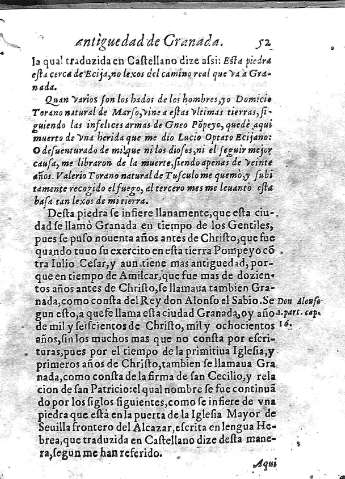 antiguedad de Granada. 52
la qual traduzida en Castellano dize assi: Esta piedra
esta cerca de Ecija, no lexos del camino real que va a Gra-
nada.
Quan varios son los hados de los hombres, yo Domicio
Torano natural de Marso, vine a estas vltimas tierras, si-
guiendo las infelices armas de Gneo Põpeyo, quedè aqui
muerto de vna herida que me dio Lucio Optato Ecijano:
O desuenturado de mi, que ni los dioses, ni el seguir mejor
causa, me libraron de la muerte, siendo apenas de veinte
años. Valerio Torano natural de Tusculo me quemò, y subi
tamente recogido el fuego, el tercero mes me leuantò esta
basa tan lexos de mi tierra.
Desta piedra se infiere llanamente, que esta ciu-
dad se llamò Granada en tiempo de los Gentiles,
pues se puso nouenta años antes de Christo, que fue
quando tuuo su exercito en esta tierra Pompeyo cõ
tra Iulio Cesar, y aun tiene mas antiguedad, por-
que en tiempo de Amilcar, que fue mas de dozien-
tos años antes de Christo, se llamaua tambien Gra-
nada, como consta del Rey don Alonso el Sabio. Se
gun esto, a que se llama esta ciudad Granada, oy año
de mil y seiscientos de Christo, mil y ochocientos
años, sin los muchos mas que no consta por escri-
turas, pues por el tiempo de la primitiua Iglesia, y
primeros años de Christo, tambien se llamaua Gra
nada, como consta de la firma de san Cecilio, y rela
cion de san Patricio: el qual nombre se fue continuã
do por los siglos siguientes, como se infiere de vna
piedra que està en la puerta de la Iglesia Mayor de
Seuilla frontero del Alcazar, escrita en lengua He-
brea, que traduzida en Castellano dize desta mane-
ra, segun me han referido.
Aqui
Don Alonso
a. part. cap.
16.